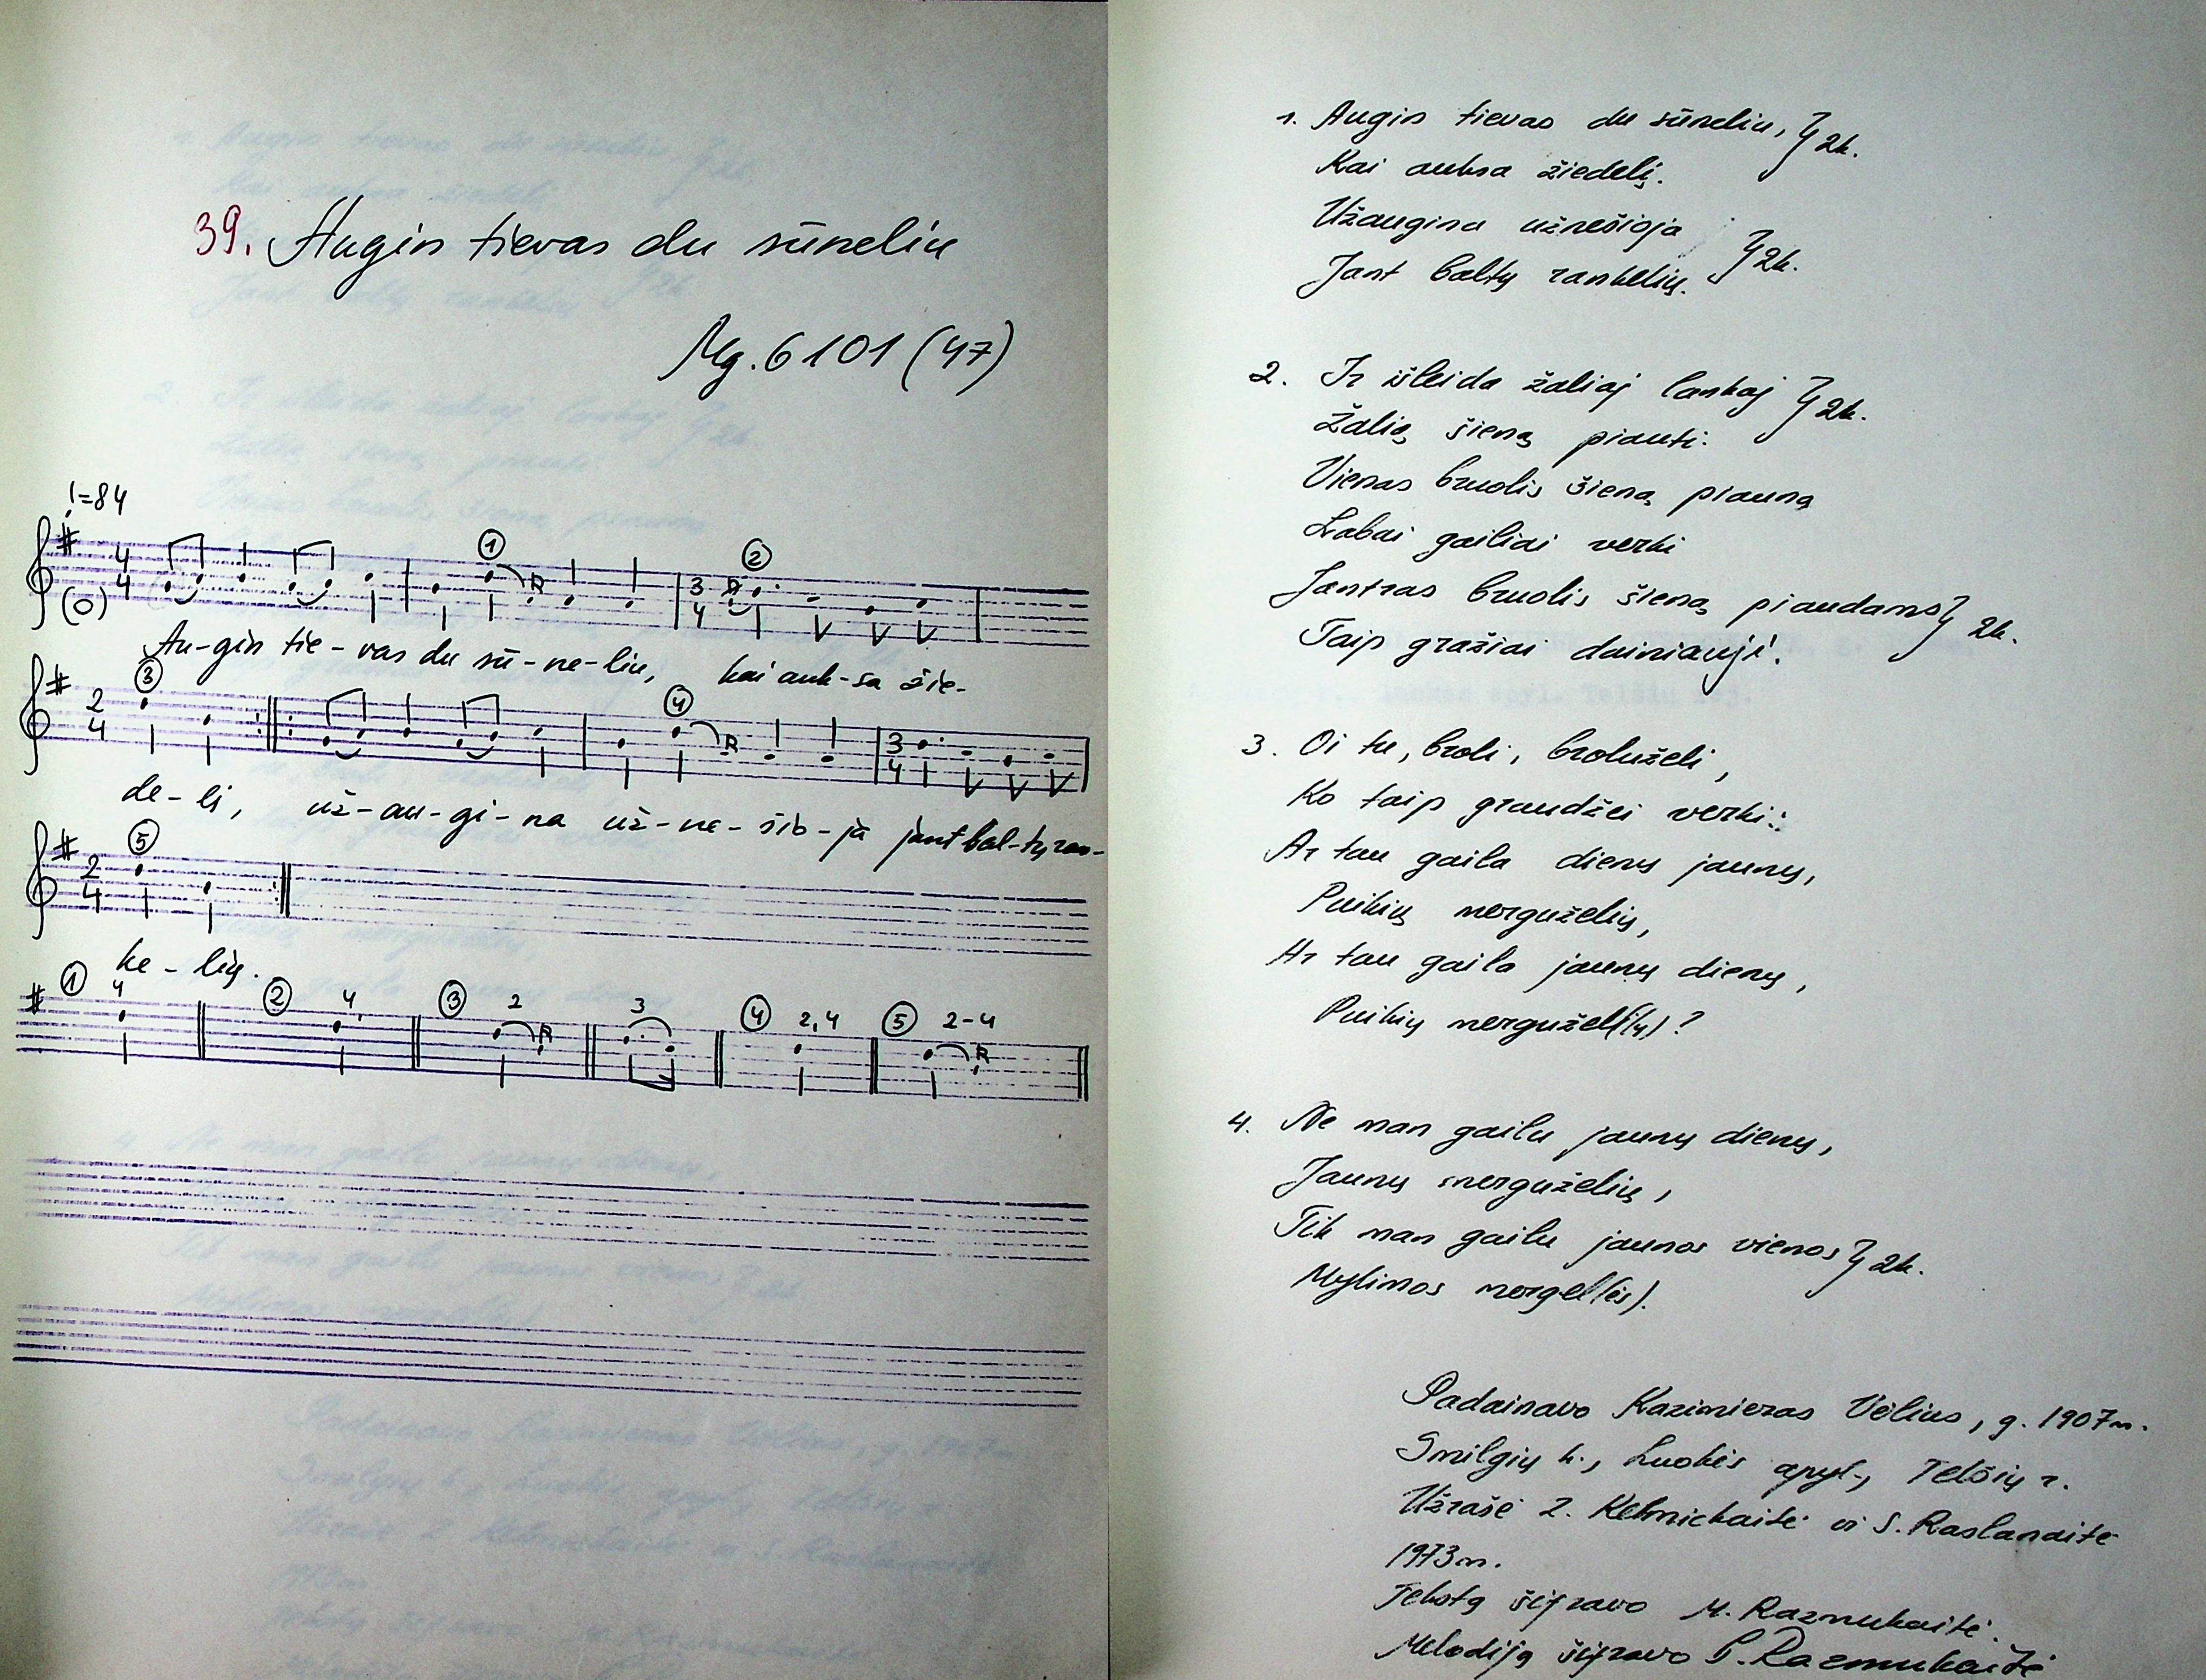 39. Augin tievas du sūneliu
Mg. 6101 (47)
♩=84
4 4 ① 3 4 ②
(O)
Au-gin tie-vas du sū-ne-liu, kai auk-sa žie-
③
2 4 ④ 3 4
de-lį, už-au-gi-na už-ne-šio-ja jant bal-tų ran-
⑤
2 4
ke-lių.
① 4 ② 4, ③ 2 3 ④ 2,4 ⑤ 2-4
1. Augin tievas du sūneliu, } 2k.
Kai auksa žiedelį.
Užaugina užnešioja
Jant baltų rankelių. } 2k.
2. Ir išleida žaliaj lankaj } 2k.
Žalią šieną piauti.
Vienas bruolis šieną piauną
Labai gailiai verki
Jantras bruolis šieną piaudams } 2k.
Taip gražiai dainiauji.
3. Oi tu, broli, broluželi,
Ko taip graudžei verki:
Ar tau gaila dienų jaunų,
Puikių merguželių,
Ar tau gaila jaunų dienų,
Puikių merguželi(ų)?
4. Ne man gailu jaunų dienų,
Jaunų merguželių,
Tik man gailu jaunos vienos } 2k.
Mylimos mergel(ės).
Padainavo Kazimieras Vėlius, g. 1907m.
Smilgių k., Luokės apyl., Telšių r.
Užrašė Z. Kelmickaitė ir S. Raslanaitė
1973m.
Tekstą šifravo M. Razmukaitė.
Melodiją šifravo S. Razmukaitė